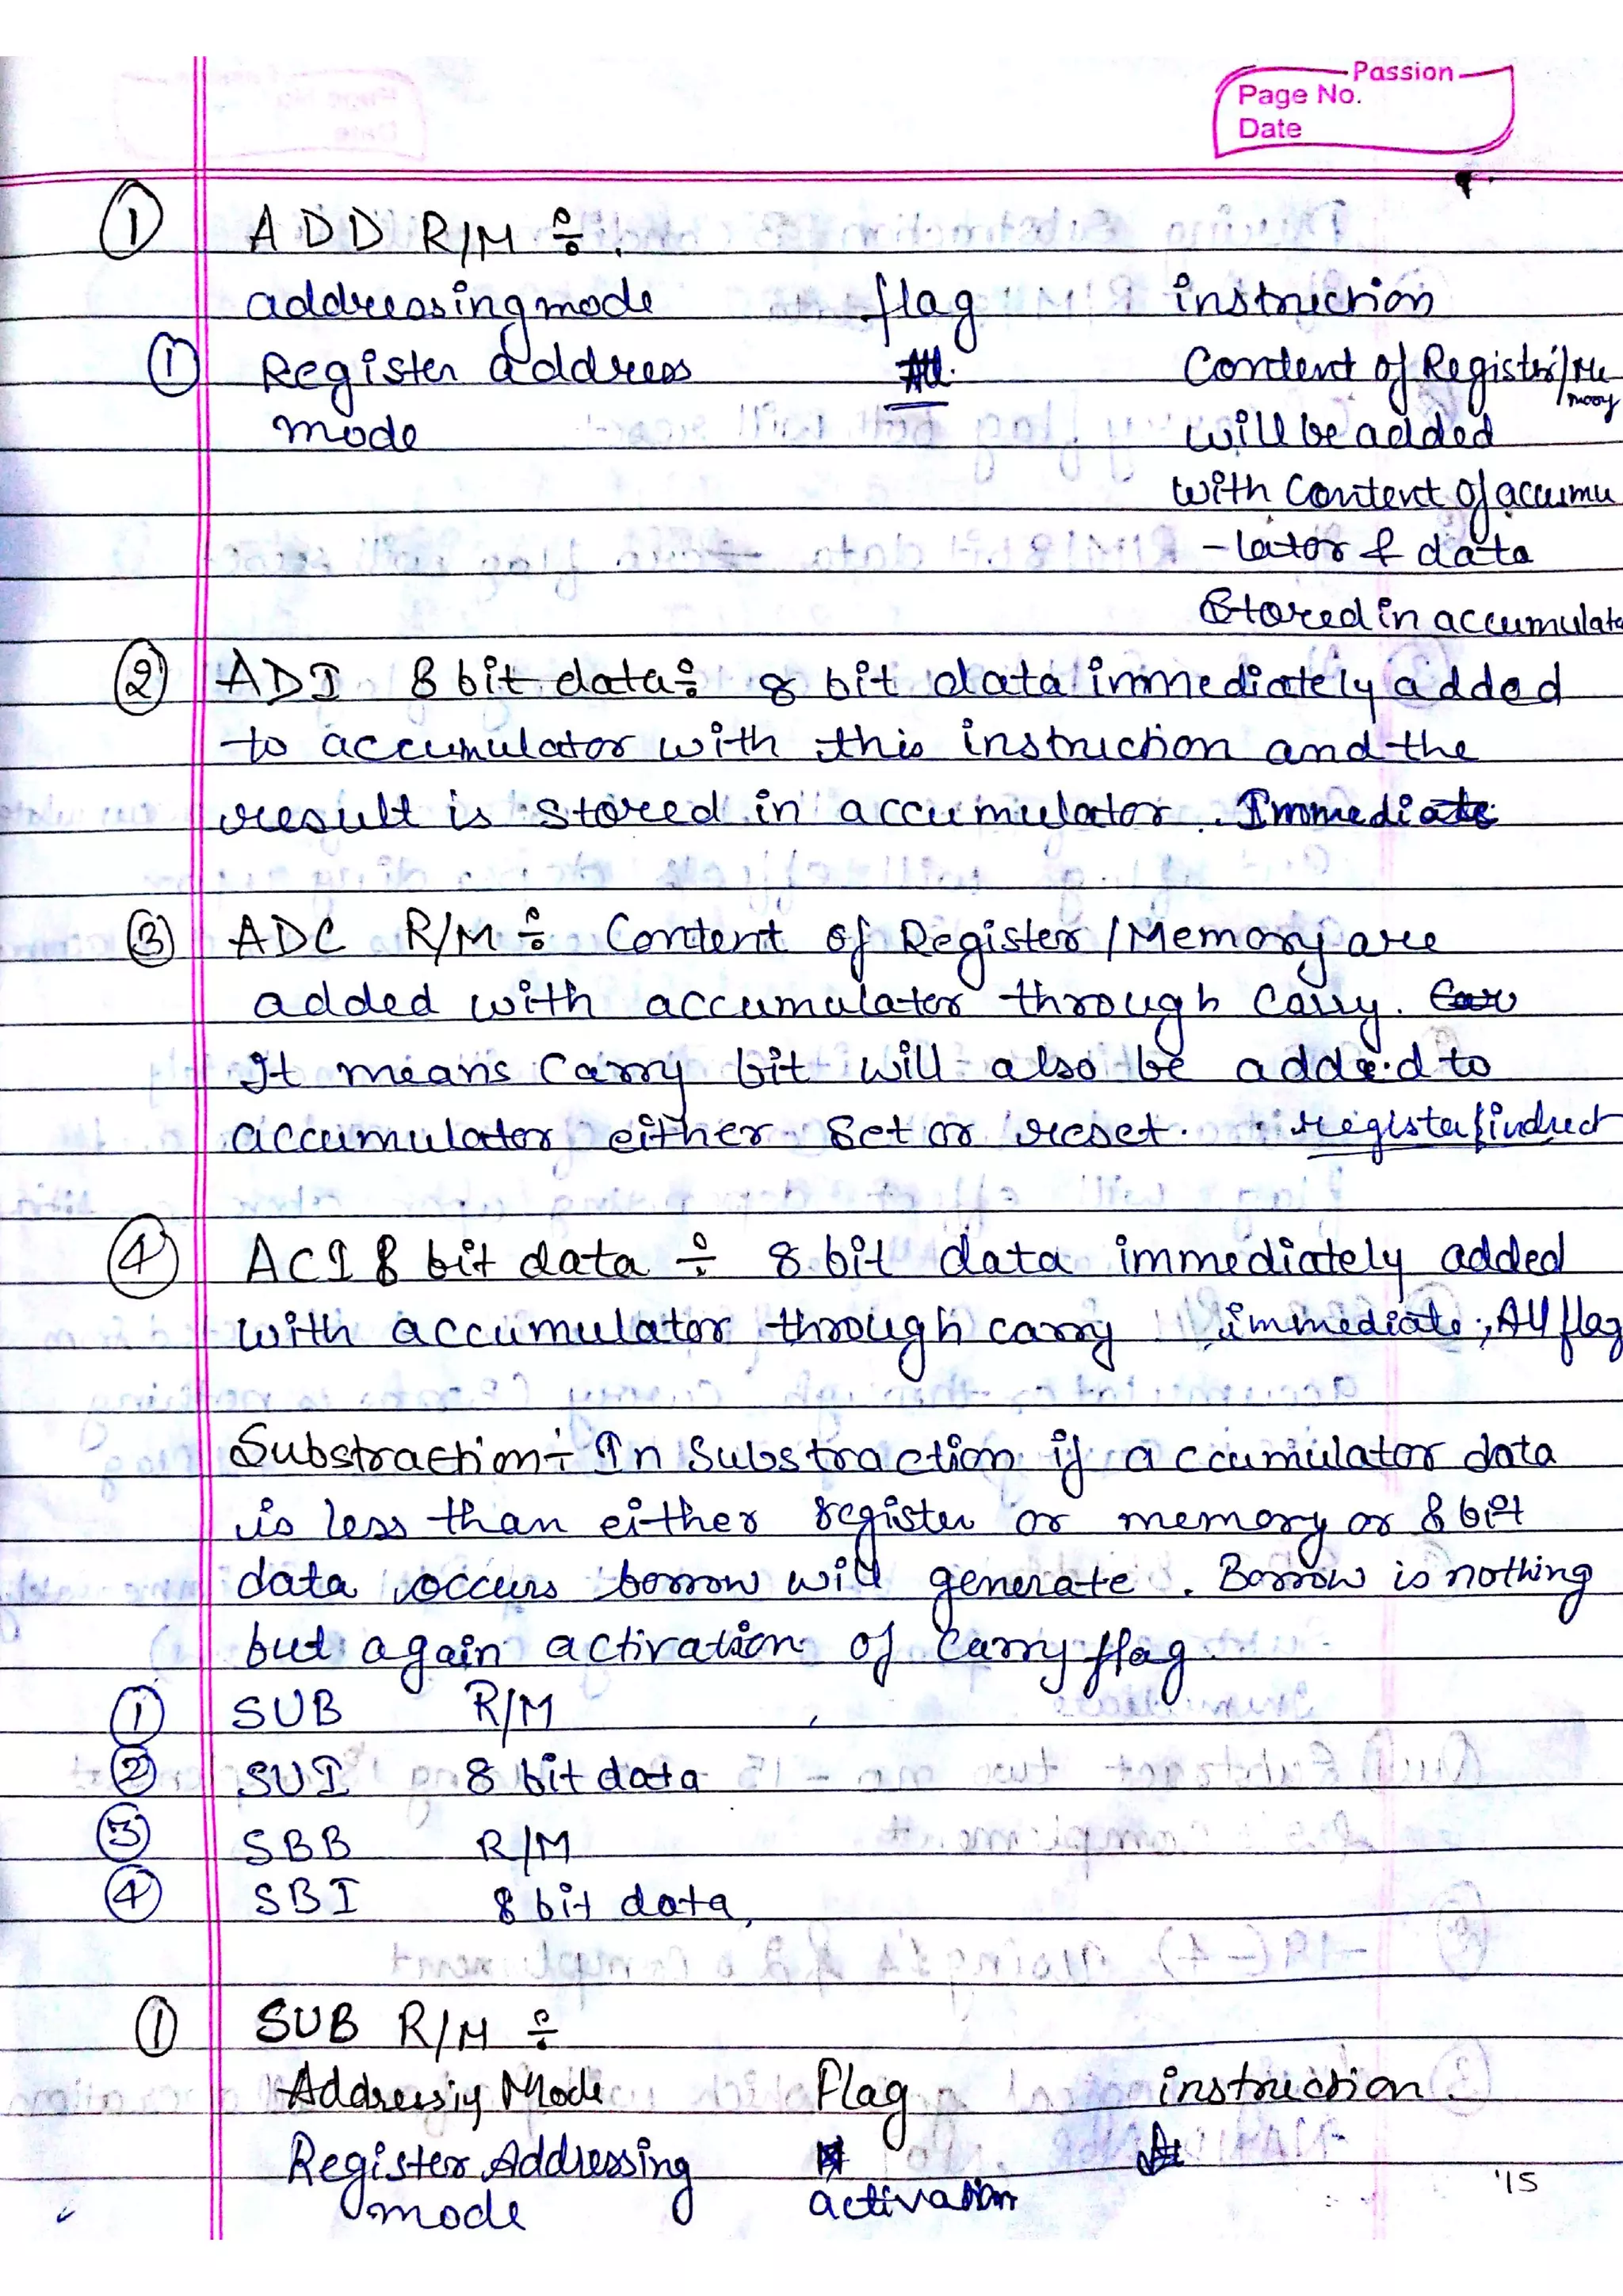 Passion
Page No.
Date
① ADD R/M ÷
addressing mode flag instruction
① Register address All Content of Register/Me
mode mory
will be added
with Content of accumu
- lator & data
Stored in accumulato
② ADI 8 bit data ÷ 8 bit data immediately added
to accumulator with this instruction and the
result is stored in accumulator. Immediate
③ ADC R/M ÷ Content of Register / Memory are
added with accumulator through Carry.
It means Carry bit will also be added to
accumulator either Set or reset. register/indirect
④ ACI 8 bit data ÷ 8 bit data immediately added
with accumulator through carry immediate, All flag
Substraction ÷ In Substraction if accumulator data
is less than either register or memory or 8 bit
data occurs borrow will generate. Borrow is nothing
but again activation of Carry flag.
① SUB R/M
② SUI 8 bit data
③ SBB R/M
④ SBI 8 bit data,
① SUB R/M ÷
Addressig Mode Flag instruction.
Register Addressing
mode activation
'15